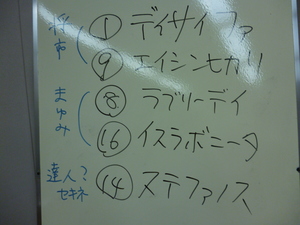 将市
① ディサイファ
⑨ エイシンヒカリ
まゆみ
⑧ ラブリーデイ
⑯ イスラボニータ
達人?
セキネ
⑭ ステファノス